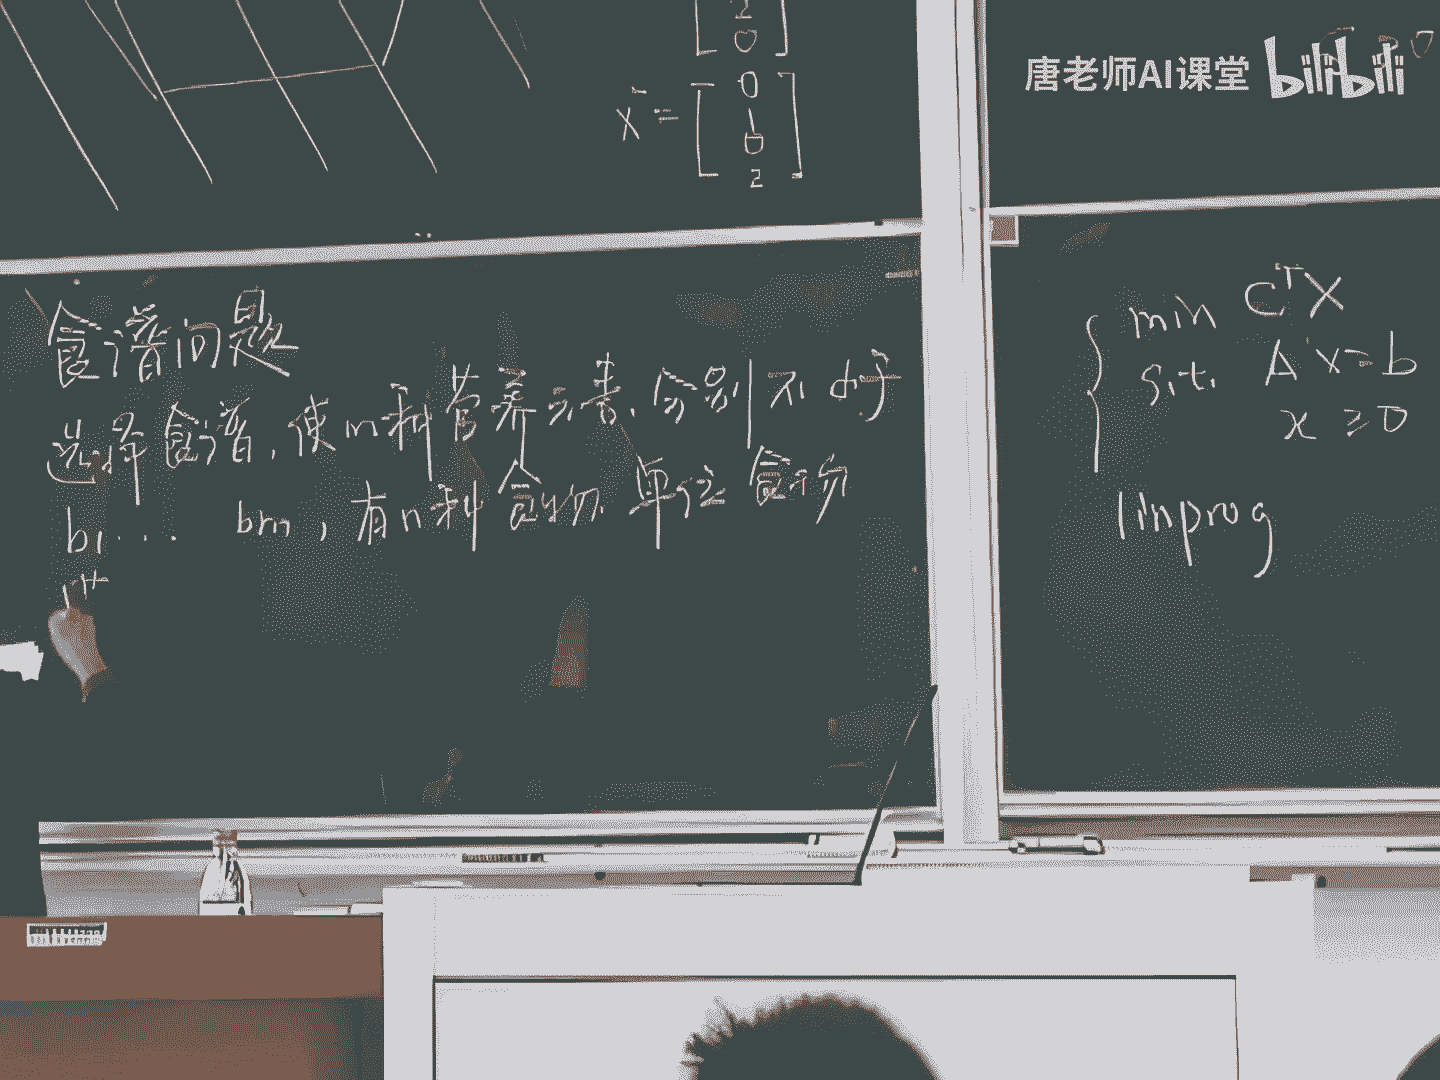 2
0
x̄ = [0 1 0 2]
唐老师AI课堂 bilibili
食谱问题
选择食谱，使m种营养元素，分别不小于
b1... bm，有n种食物，单位食物
min CᵀX
s.t. AX=b
x ≥ 0
linprog